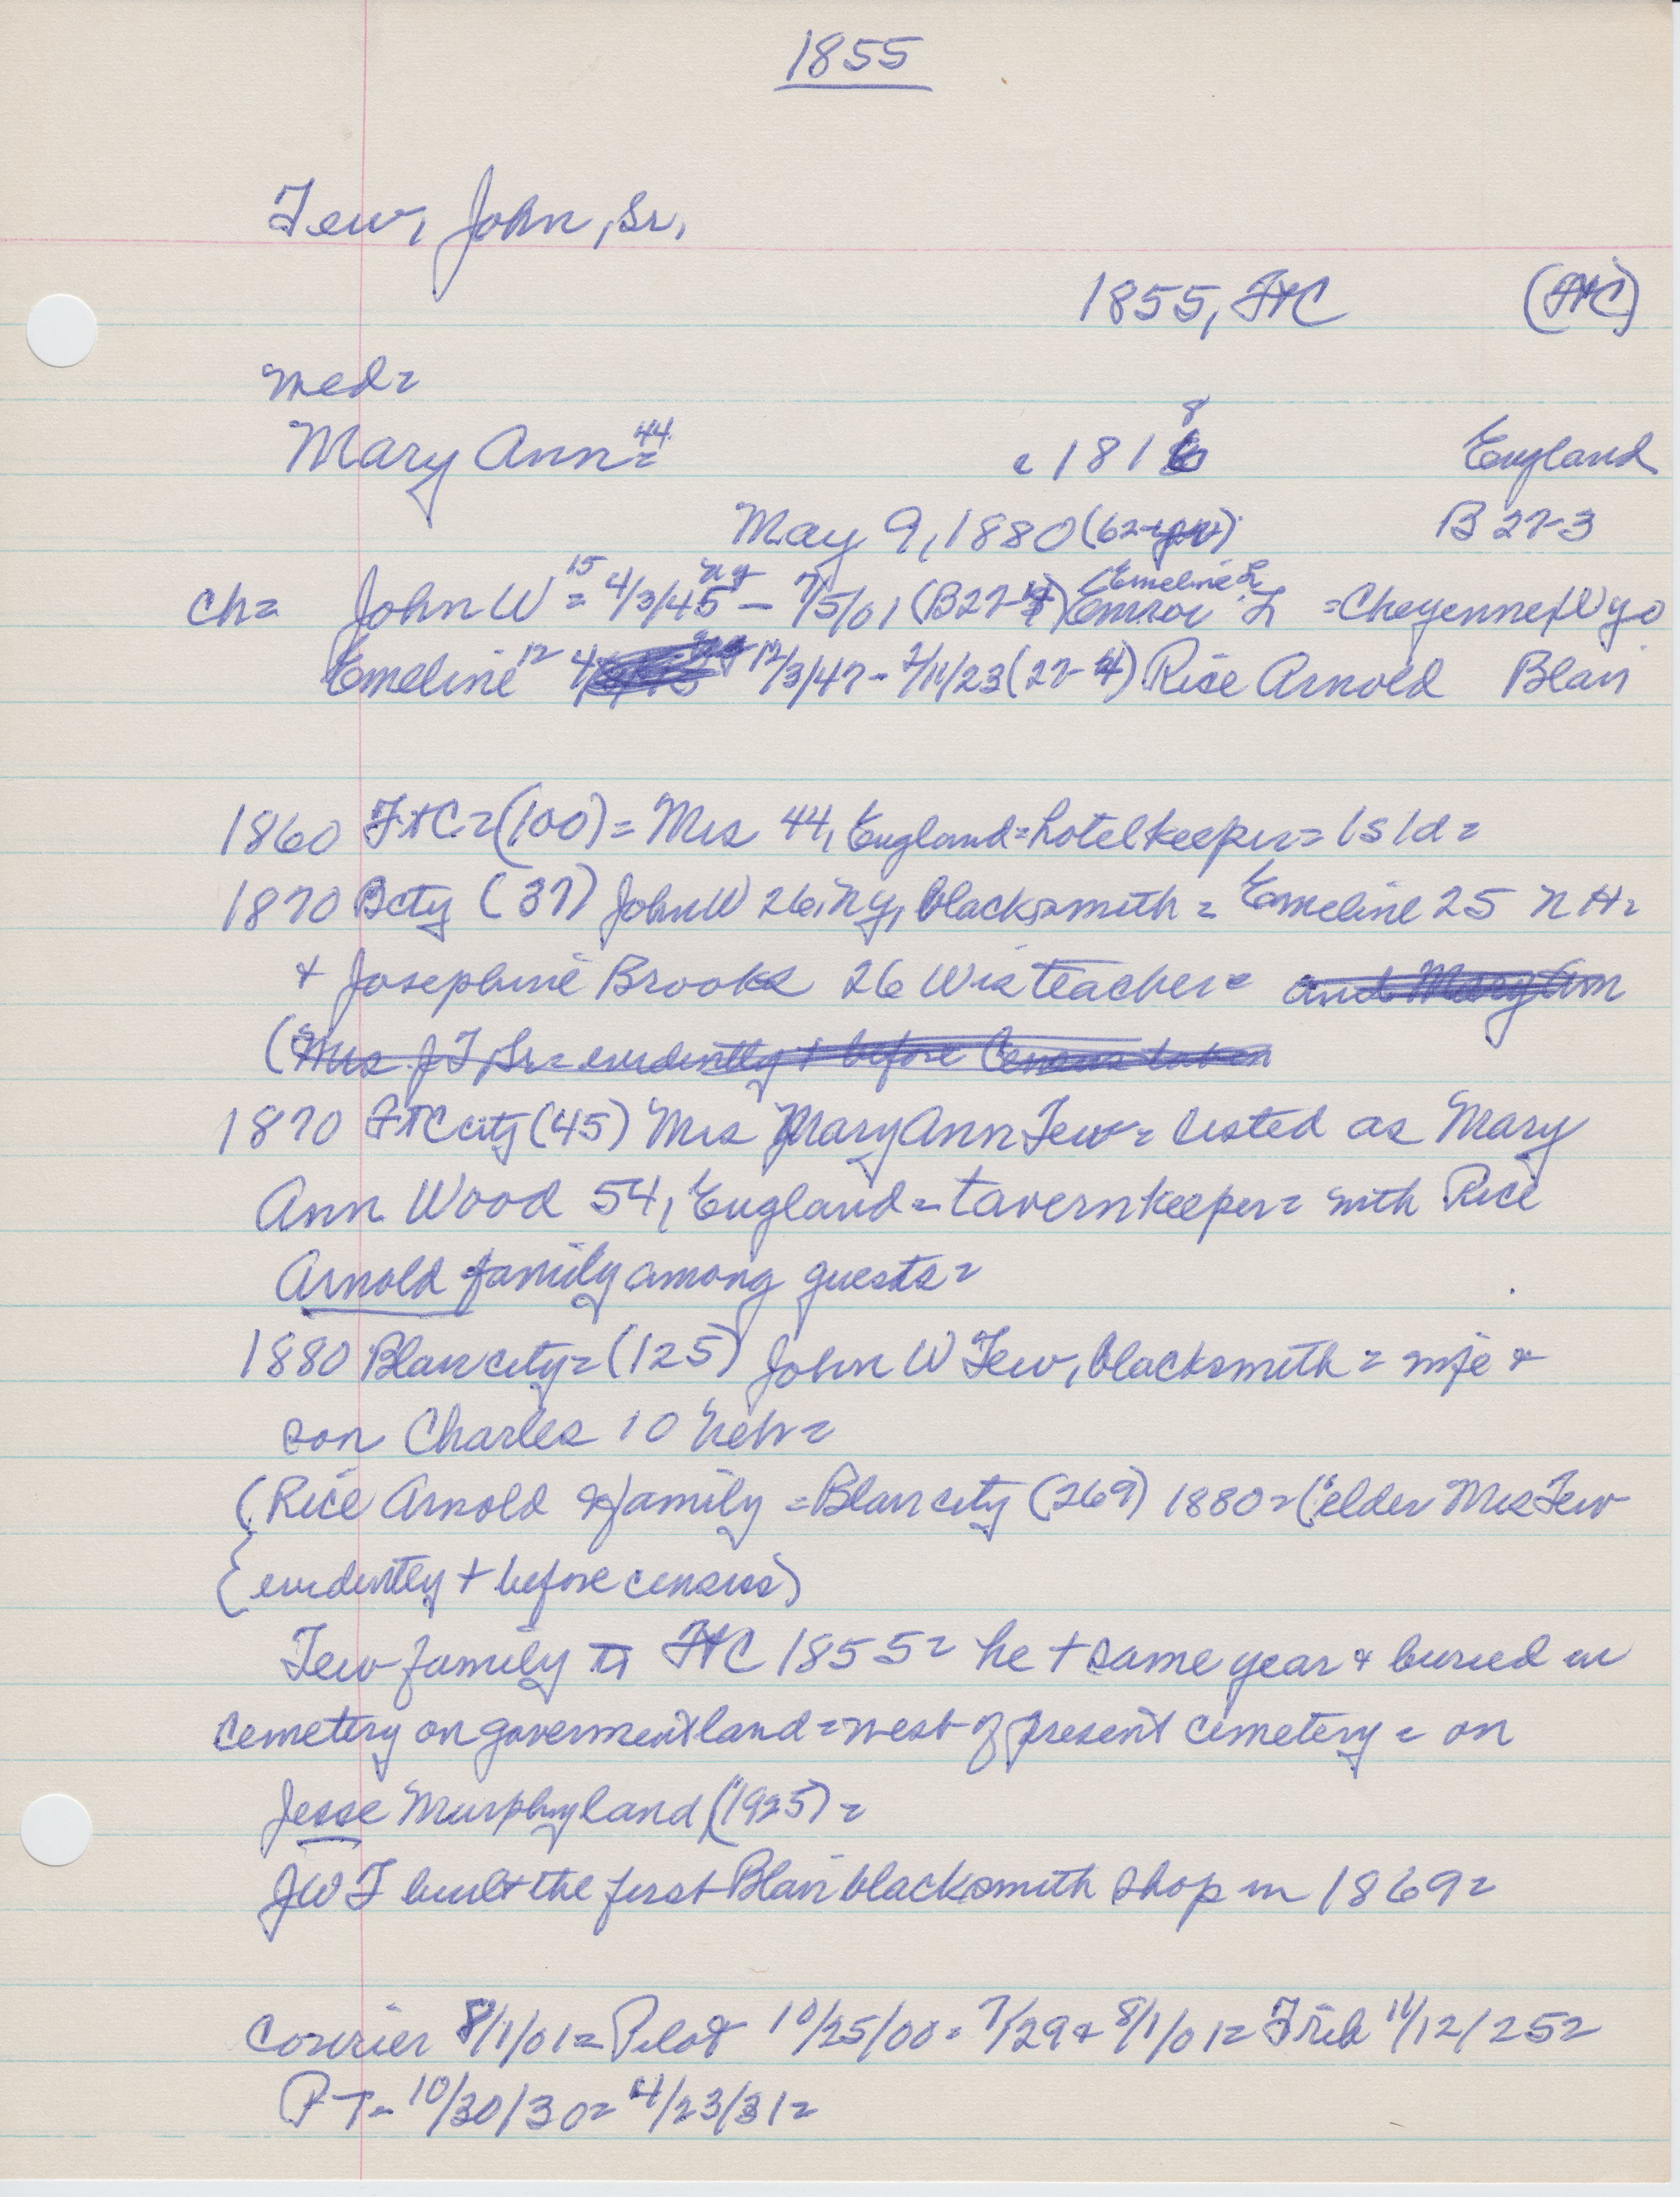 1855
Tew, John, Sr,
1855, FtC (FtC)
med=
Mary Ann 44 = c 1818 England
May 9, 1880 (62-) B 27-3
ch= John W 15 = 4/3/45 NY - 7/5/01 (B27-4) Emeline L =Cheyenne Wyo
Emeline 12 12/3/47 - 2/11/23 (27-4) Rice Arnold Blair
1860 FtC=(100)= Mrs 44, England=hotelkeeper= 1s 1d=
1870 Bcty (37) John W 26, NY, blacksmith = Emeline 25 NH=
+ Josephine Brooks 26 Wis teacher= and Mary Ann
(Mrs J T, Sr= evidently + before Census taken
1870 FtC city (45) Mrs Mary Ann Tew= listed as Mary
Ann Wood 54, England=tavernkeeper= with Rice
Arnold family among guests=
1880 Blair city=(125) John W Tew, blacksmith = wife &
son Charles 10 Neb=
(Rice Arnold & family =Blair city (269) 1880=(elder Mrs Tew
{evidently + before census)
Tew family to FtC 1855= he + same year & buried in
cemetery on government land=west of present cemetery= on
Jesse Murphy land (1925)=
JWT built the first Blair blacksmith shop in 1869=
Courier 8/1/01= Pilot 10/25/00= 7/29 & 8/1/01= Trib 11/12/25=
PT= 10/30/30= 4/23/31=